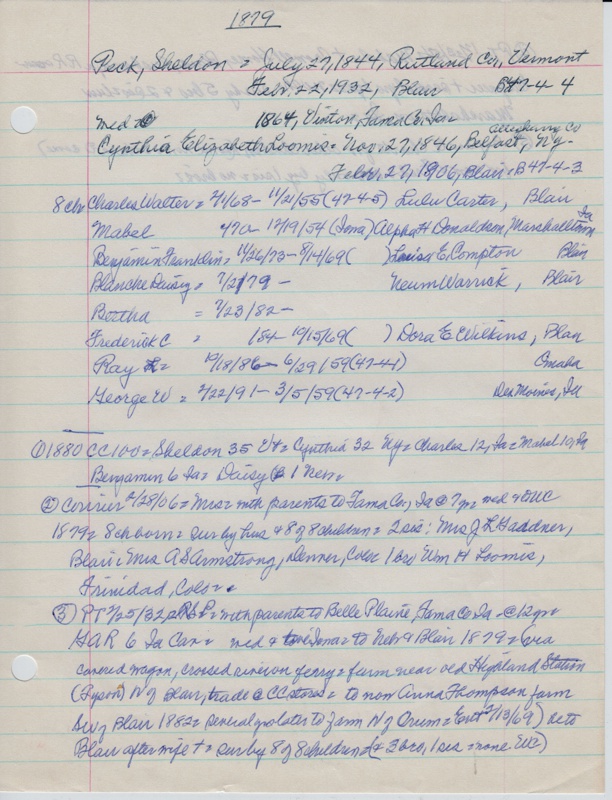 1879
Peck, Sheldon = July 27, 1844, Rutland Co, Vermont
Feb. 22, 1932, Blair B47-4-4
med 1864, Vinton, Tama Co, Ia =
Cynthia Elizabeth Loomis = Nov. 27, 1846, Belfast, Allegheny Co Ny -
Feb. 27, 1906, Blair = B47-4-3
8 ch Charles Walter = 7/1/68 - 11/21/55 (47-4-5) Lulu Carter, Blair
Mabel 4/70 - 12/19/54 (Iona) Alpha H Donaldson, Marshalltown Ia
Benjamin Franklin = 11/26/73 - 8/14/69 ( ) Louisa E. Compton Blair
Blanche Daisy = 7/2/79 - Neum Warrick, Blair
Bertha = 7/23/82 -
Frederick C = 184 - 10/15/69 ( ) Dora E Wilkins, Blair
Ray = 10/18/86 - 6/29/59 (47-4-1) Omaha
George W = 7/22/91 - 3/5/59 (47-4-2) Des Moines, Ia
① 1880 CC 100 = Sheldon 35 Vt = Cynthia 32 Ny = Charles 12, Ia = Mabel 10, Ia
Benjamin 6 Ia = Daisy 1 Neb =
② Courier 2/28/06 = Mrs = with parents to Tama Co, Ia @ 7 yr = med & to WC
1879 = 8 ch born = sur by hus & 8 of 8 children = 2 sis: Mrs J L Gaddner,
Blair & Mrs A S Armstrong, Denver, Colo 1 bro Wm H Loomis,
Trinidad, Colo =
③ PT 2/25/32 = with parents to Belle Plaine, Tama Co Ia = @ 12 yr =
GAR 6 Ia Cav = med & to Neb & Blair 1879 = via
covered wagon, crossed river on ferry = farm near old Highland Station
(Tyson) N of Blair, trade @ CC stores = to now Anna Thompson farm
SW of Blair 1882 = several yrs later to farm N of Orum = Ent 2/13/69) ret to
Blair after wife † = sur by 8 of 8 children (& 3 bro, 1 sis = none WC)